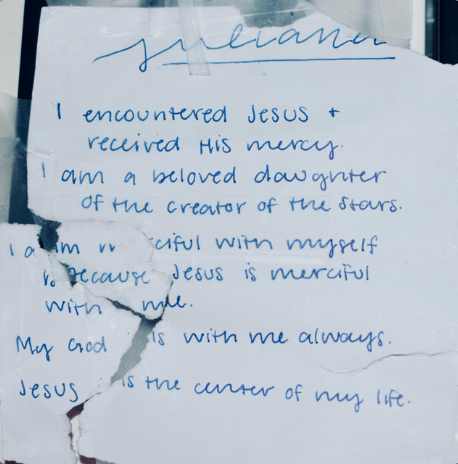 Juliana
I encountered Jesus +
received His mercy.
I am a beloved daughter
of the creator of the stars.
I am merciful with myself
because Jesus is merciful
with me.
My God is with me always.
Jesus is the center of my life.